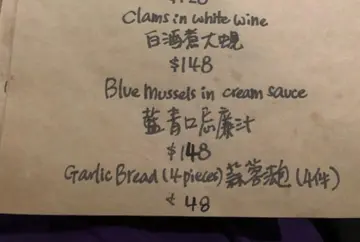 Clams in white wine
白酒煮大蜆
$148
Blue Mussels in cream sauce
藍青口忌廉汁
$148
Garlic Bread (4 pieces) 蒜蓉包 (4件)
48